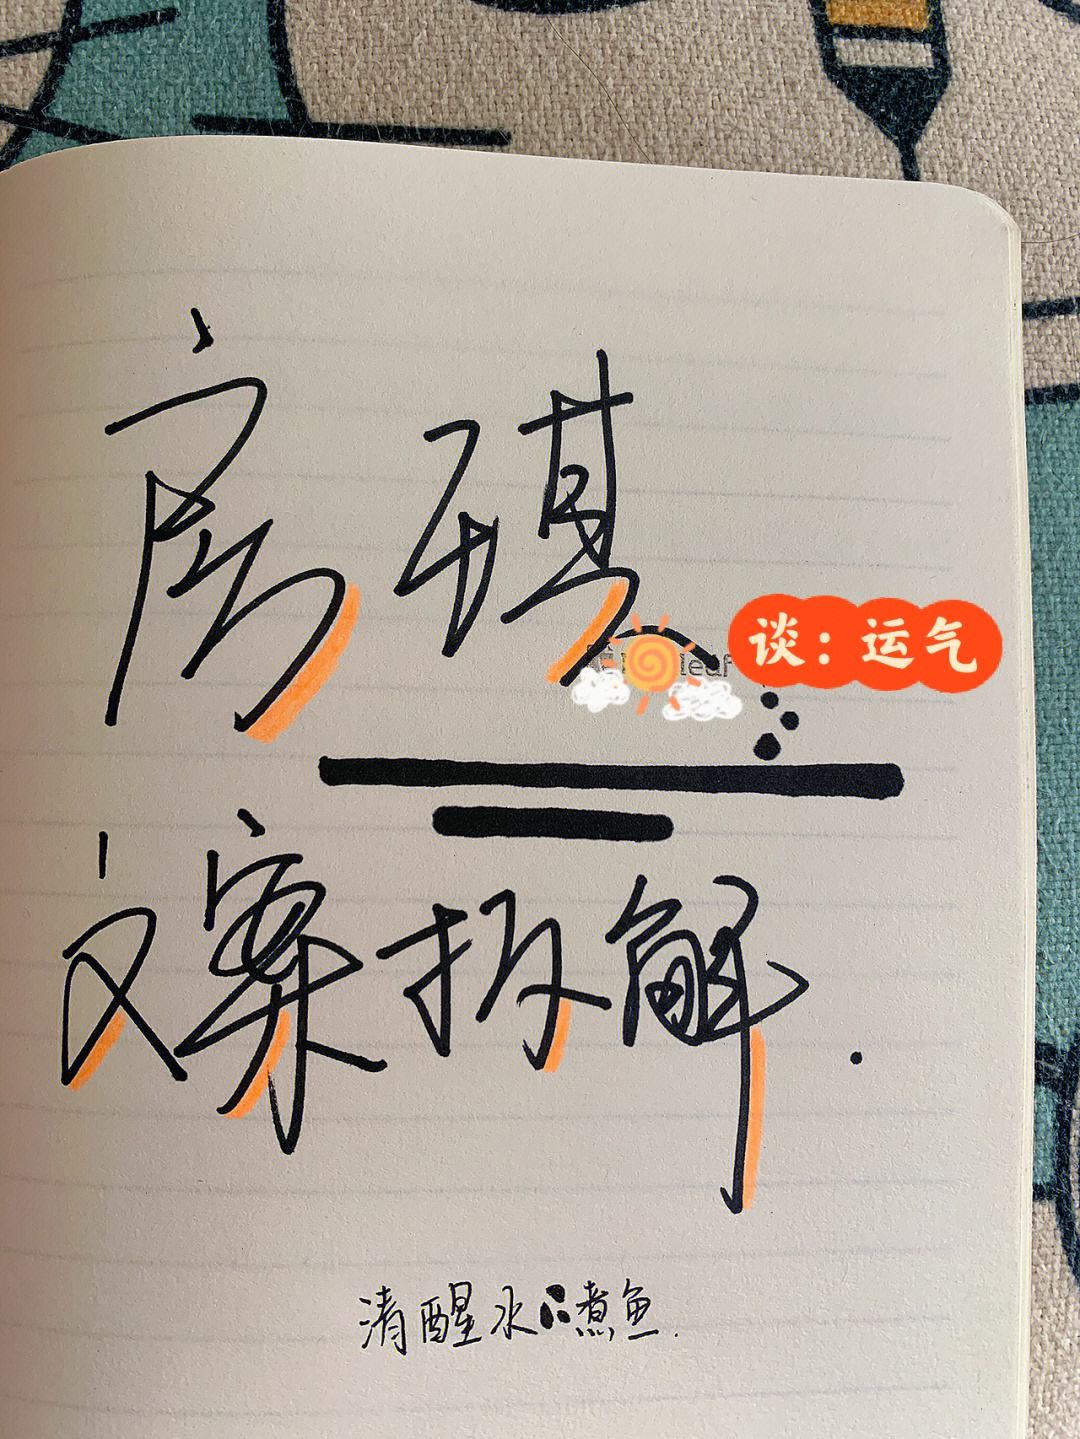 房琪
leaf
谈：运气
文案拆解.
清醒水煮鱼.